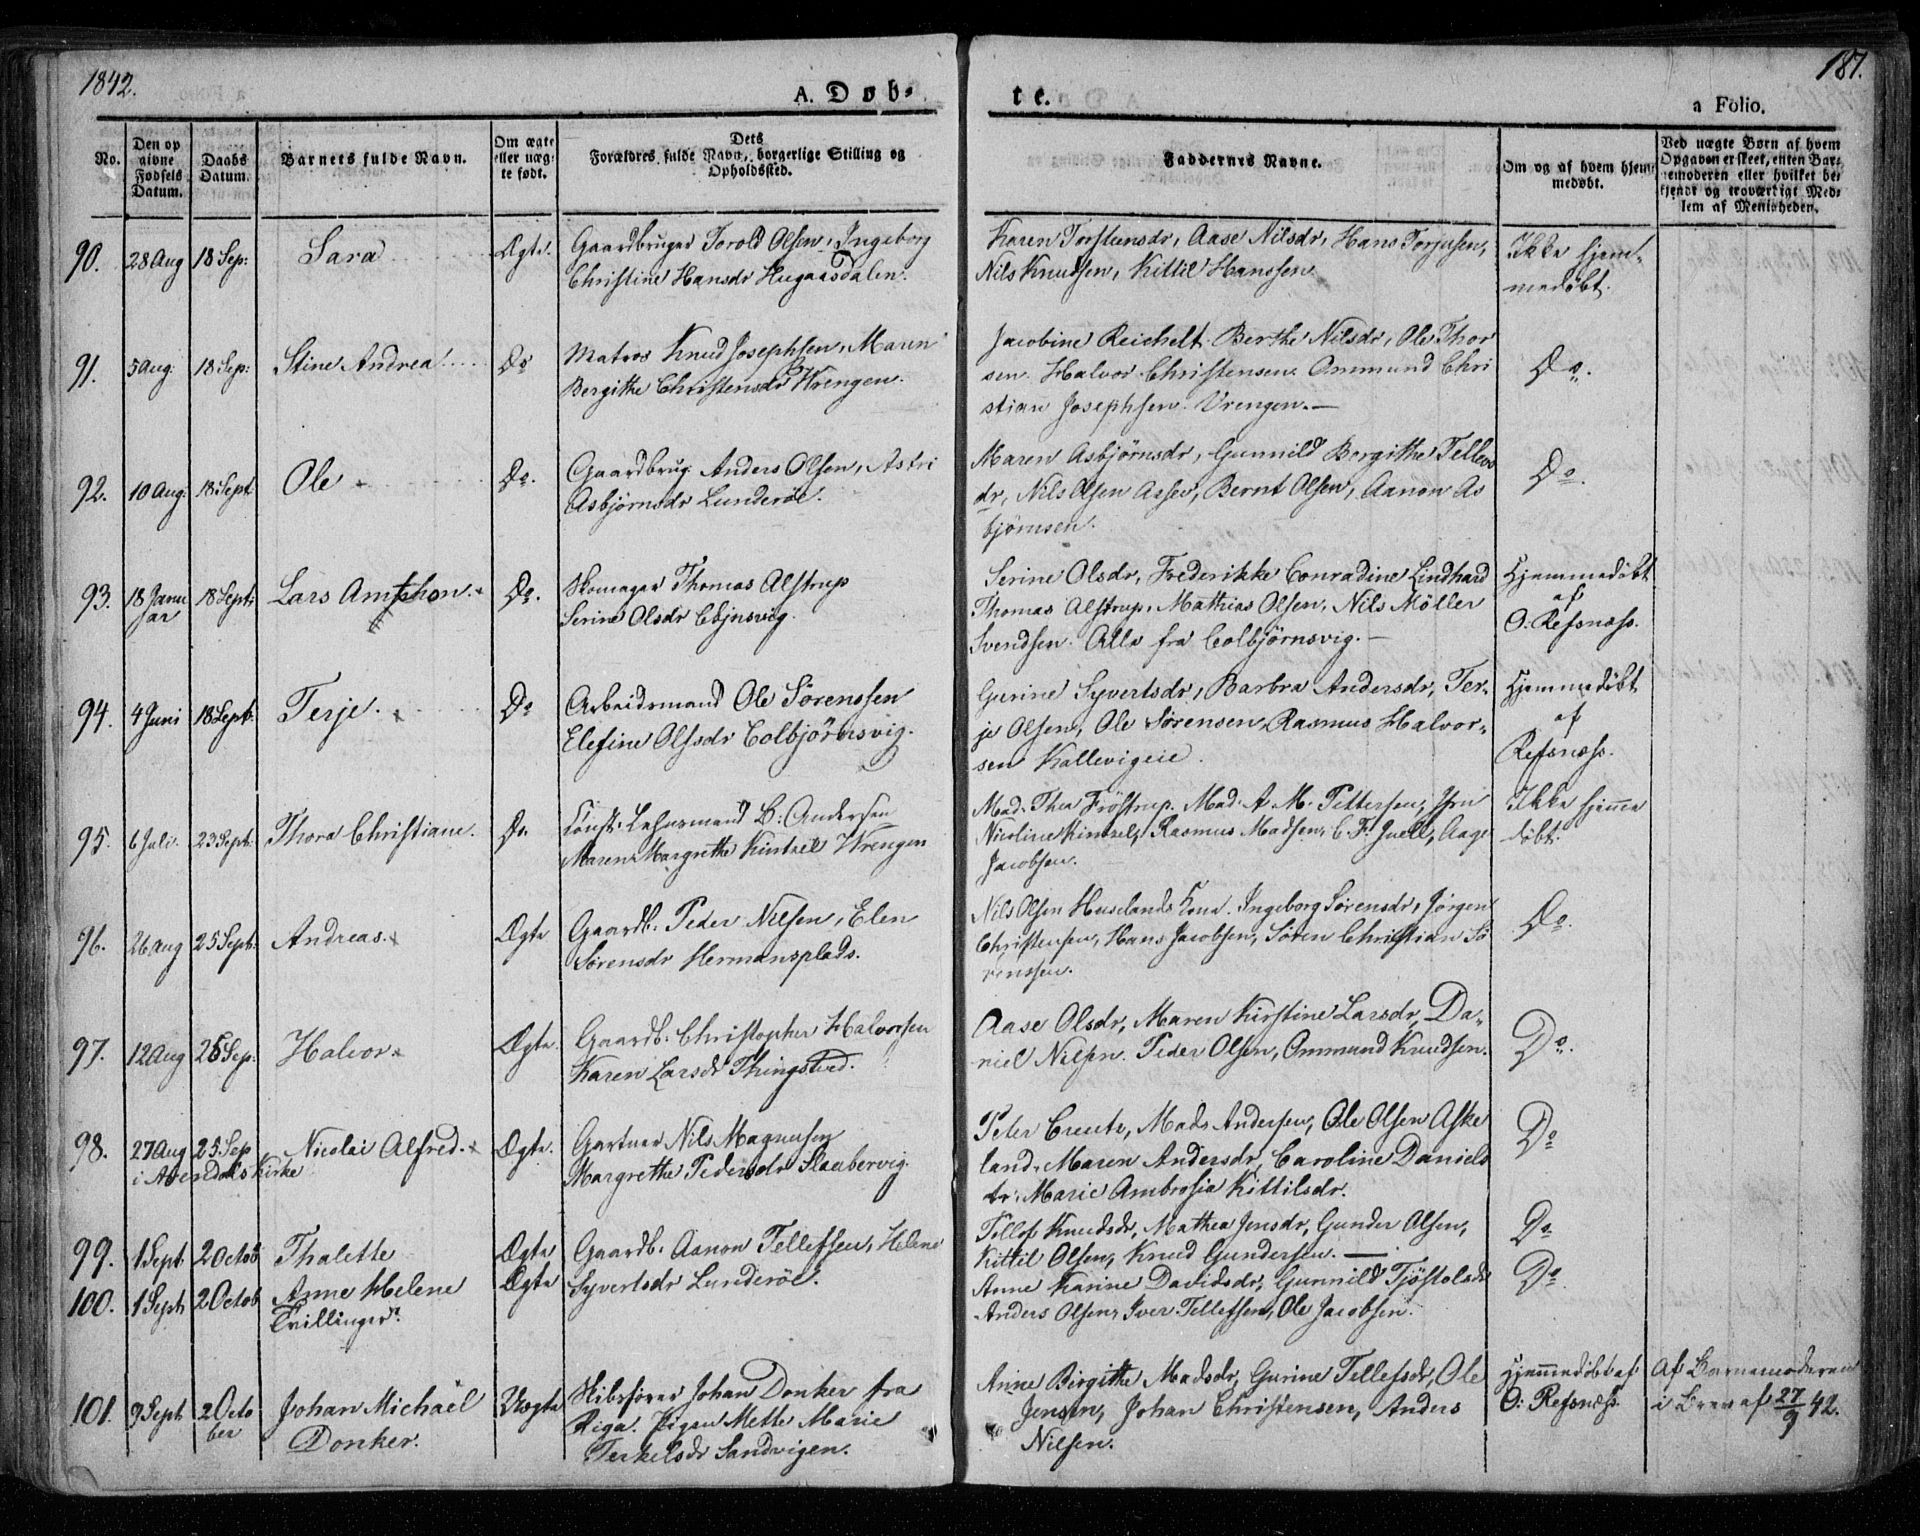 1842.
187.
A. Døb-
te.
a Folio.
No.
Den op
givne
Fødsels
Datum.
Daabs
Datum.
Barnets fulde Navn.
Om ægte
eller uæg-
te født.
Dets
Forældres fulde Navn, borgerlige Stilling og
Opholdssted.
Faddernes Navne.
Om og af hvem hjem-
medøbt.
Ved uægte Børn af hvem
Opgaven er skeet, enten Bar-
nemoderen eller hvilket be-
kjendt og troværdigt Med-
lem af Menigheden.
90. 28 Aug 18 Sep: Sara Ægte.
Gaardbruger Torold Olsen, Ingeborg
Christine Hansdr Hugaasdalen.
Karen Torstensdr, Aase Nilsdr, Hans Torjusen,
Nils Knudsen, Kittil Hanssen
Ikke hjem-
medøbt.
91. 5 Aug. 18 Sep: Stine Andrea. Do
Matros Knud Josephsen, Maren
Bergithe Christensdr Wrengen.
Jacobine Reichelt. Berthe Nilsdr, Ole Thor
sen. Halvor Christensen. Ommund Chri
stian Josephsen. Vrengen.—
Do.
92. 10 Aug. 18 Sept. Ole Do.
Gaardbrug. Anders Olsen, Astri
Asbjørnsdr Lunderöe.
Maren Asbjörnsdr, Gunnild Borgithe Tellevs
dr, Nils Olsen Asser, Bernt Olsen, Aanon As
björnsen.
Do.
93. 18 Janu
ar
18 Sept: Lars Amphon. Do.
Skomager Thomas Alstrup
Serine Olsdr Cbjnsvig.
Serine Olsdr, Frederikke Conradine Lindhard
Thomas Alstrup, Mathias Olsen, Nils Möller
Svendsen. Alle fra Colbjörnsvig.—
Hjemmedöbt
af
O. Refsnæss.
94. 4 Juni 18 Sept. Terje. Do
Arbeidsmand Ole Sörenssen
Elefine Olsdr Colbjörnsvig.
Gurine Syvertsdr, Barbra Andersdr, Ter-
je Olsen, Ole Sörensen, Rasmus Halvor-
sen Kallevigeie.
Hjemmedöbt
af
Refsnæss.
95. 6 Juli. 23 Sept: Thora Christiane. Do
Const. Lehnsmand B. Andersen
Maren Margrethe Kintzel Wrengen
Mad. Thea Fröstrup. Mad. A. M. Pettersen, Jfru
Nicoline Kintzel, Rasmus Madsen, C. F. Juell, Aage
Jacobsen.
Ikke hjemme
döbt.
96. 26 Aug 25 Sept: Andreas. Ægte
Gaardb. Peder Nilsen, Elen
Sörensdr Hermansplads.
Nils Olsen Huselands Kone. Ingeborg Sörensdr, Jörgen
Christensen, Hans Jacobsen, Sören Christian Sö
renssen.
Do.
97. 12 Aug 25 Sep: Halvor Ægte.
Gaardb. Christopher Halvorsen
Karen Larsdr Thingstvd.
Aase Olsdr, Maren Kirstine Larsdr, Da-
niel Nilsen. Peder Olsen, Ommund Knudsen.
Do.
98. 27 Aug 25. Sep Nicolai Alfred. Ægte.
i Arendals Kirke
Gartner Nils Magnusen
Margrethe Pedersdr Slaubervig.
Peter Creutz, Mads Andersen, Ole Olsen Aske
land, Maren Andersdr, Caroline Daniels
dr, Marie Ambrosia Kittilsdr.
Do
99. 1 Sept. 2 Octob Thalette Ægte
Gaardb. Aanon Tellefsen, Helene
Tellef Knudsdr, Mathea Jensdr, Gunder Olsen,
Kittil Olsen, Knud Gundersen.—
Do
100. 1 Sept 2 Octob Anne Helene Ægte
Tvillinger.
Syvertsdr Lunderöe.
Anne Karine Davidsdr, Gunnild Tjöstolsdr
Anders Olsen, Iver Tellefsen, Ole Jacobsen.
Do
101. 9 Sept 2 Octo
ber
Johan Michaël
Donker.
Uægte
Skibsförer Johan Donker fra
Riga. Pigen Mette Marie
Terkelsdr Sandvigen.
Anne Birgithe Madsdr, Gurine Tellefsdr, Ole
Jensen, Johan Christensen, Anders
Nilsen.
Hjemmedöbt af
O. Refsnæss.
Af Barnemoderen
i Brev af 27/9 42.